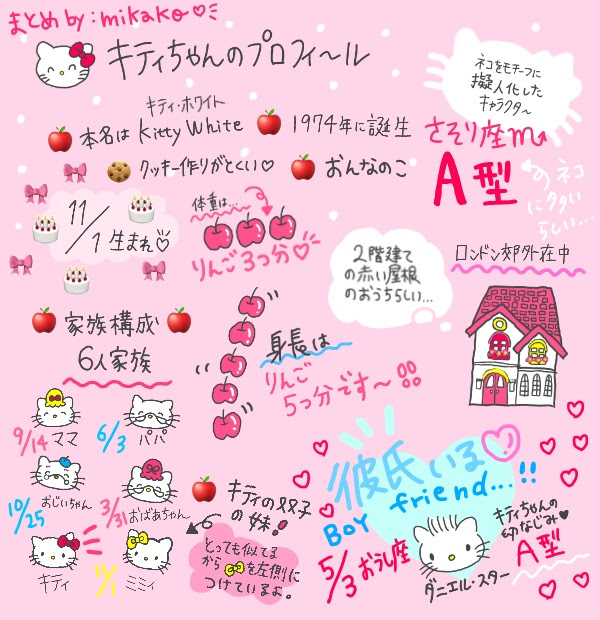 まとめ by : mikako♡
キティちゃんのプロフィ〜ル
ネコをモチーフに
擬人化した
キャラクタ〜
キティ・ホワイト
本名は Kitty White
1974年に誕生
さそり座♏
クッキー作りがとくい♡
おんなのこ
A型
↖のネコ
に多い
らしい...
11/1 生まれ♡
体重は...
りんご3つ分♡
2階建て
の赤い屋根
のおうちらしい...
ロンドン郊外在中
家族構成
6人家族
身長は
りんご
5つ分です〜!!
9/14 ママ
6/3 パパ
10/25 おじいちゃん
3/31 おばあちゃん
キティ
11/1 ミミィ
キティの双子
の妹!
とっても似てる
から🎀を左側に
つけているよ。
彼氏いる
Boy friend...!!
5/3 おうし座
ダニエル・スター
キティちゃんの
幼なじみ♥
A型